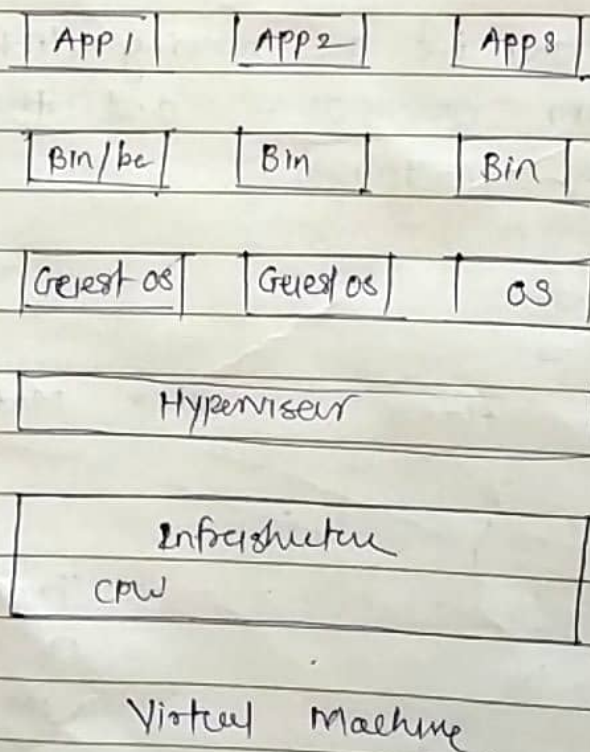 App 1 App 2 App 3
Bin/be Bin Bin
Guest OS Guest OS OS
Hyperviseur
Infrastructure
CPU
Virtual Machine